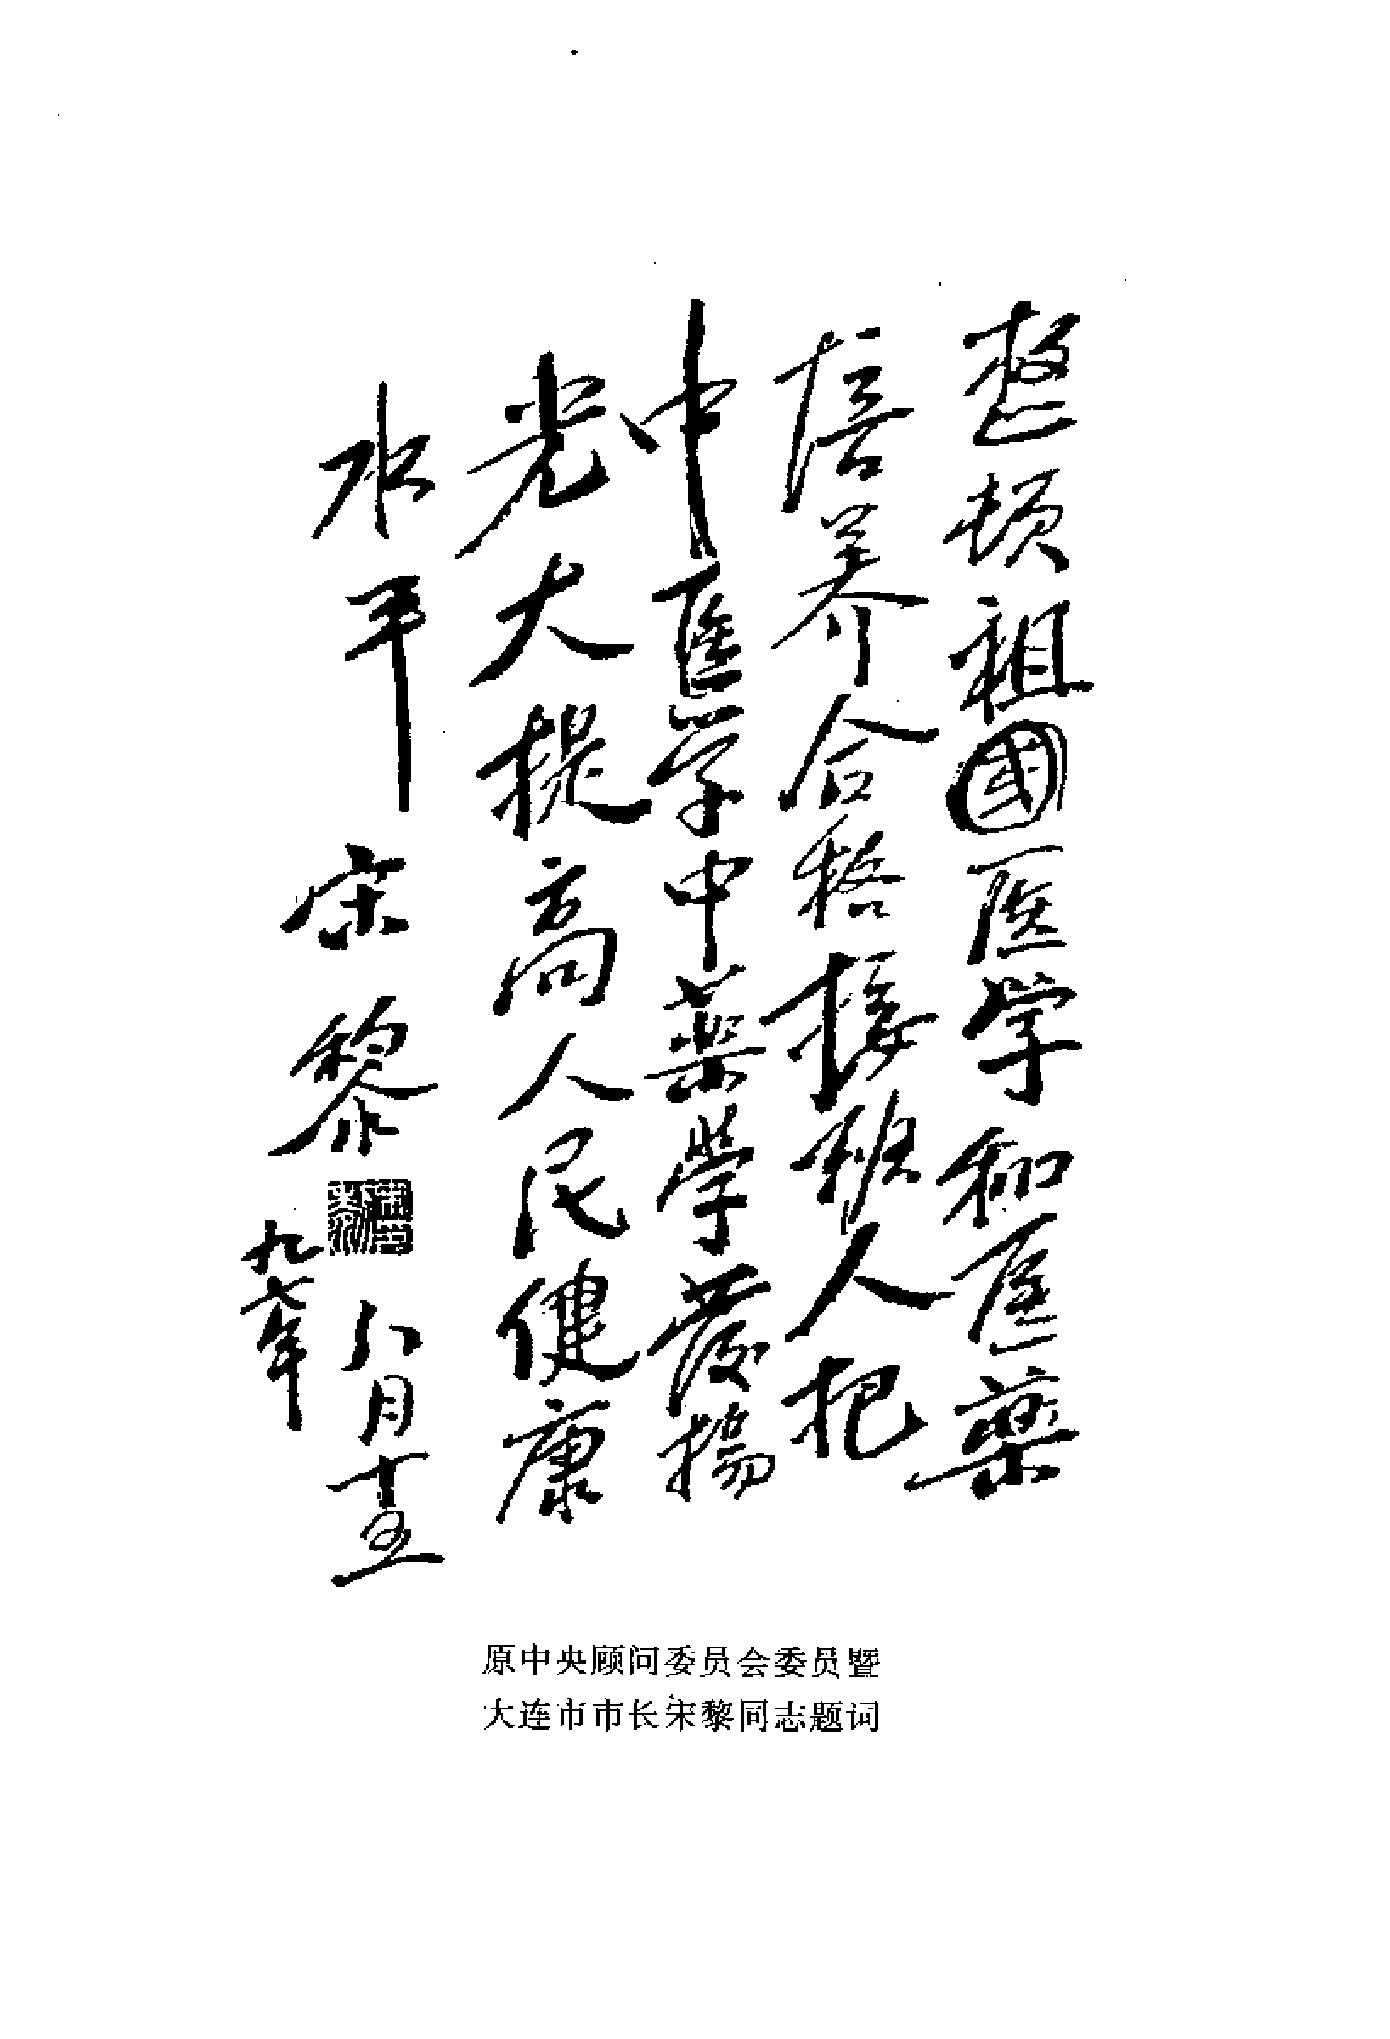 整顿祖國医学和医藥
培养合格接班人把
中医学中藥學發揚
光大提高人民健康
水平 宋黎
八月十五
九七年
原中央顾问委员会委员暨
大连市市长宋黎同志题词